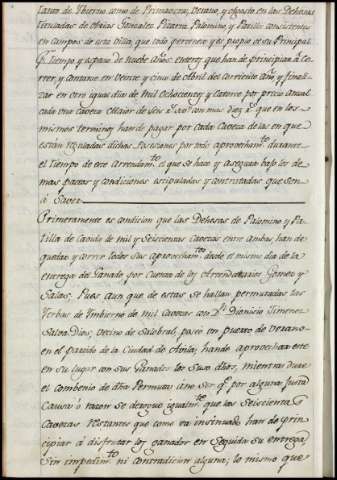 tasar de Ybierno como de Primavera, Verano, y Otoño en las Dehesas
tituladas de otxias Gonzalez Pizarra Palomino, y Patilla consistentes
en campos de esta Villa, que todo pertenece y es propio de su Principal
p.r tiempo y espacio de nuebe años enteros que han de principian á co-
rrer, y contarse en Veinte y cinco de Abril del Corriente año y finali-
zar en otro igual dia de mil Ochocientos y Catorce por precio anual
cada una caveza maior de seis r.s von mas diez que en los
mismos terminos han de pagar por cada Caveza de las en que
están reguladas dichas Posesiones por sus aprovecham.tos durante
el tiempo de este Arrendam.to el que se hace y asegura bajo los de
mas pactos y condiciones estipuladas y contratadas que son
á Saver
Primeramente es condicion que las Dehesas de Palomino y Pa-
tilla de Cavida de mil y Seiscientas cavezas entre ambas han de
quedar y correr todos sus aprovecham.tos desde el mismo dia de la
entrega de Ganado por Cuenta de los Arrendatarios Gomez y
Salas; Pues aun que de estas se hallan permutadas las
Yerbas de Imbierno de mil cavezas con D.n Dionisio Timenez
Salva Dios, Vecino de Salobral, paseo un puerto de verano
en el partido de la Ciudad de Avila; han de aprovechar este
en su lugar con sus Ganados los suso dhos, mientras dure
el combenio de dha Permuta; uno ser q.e por alguna justa
Causa ó razon se derogue igualm.te que las seiscientas
Cavezas restantes que como va insinuado han de prin-
cipiar á disfrutar los ganados en Seguida su entrega
sin impedim.to ni contradicion alguna; lo mismo que